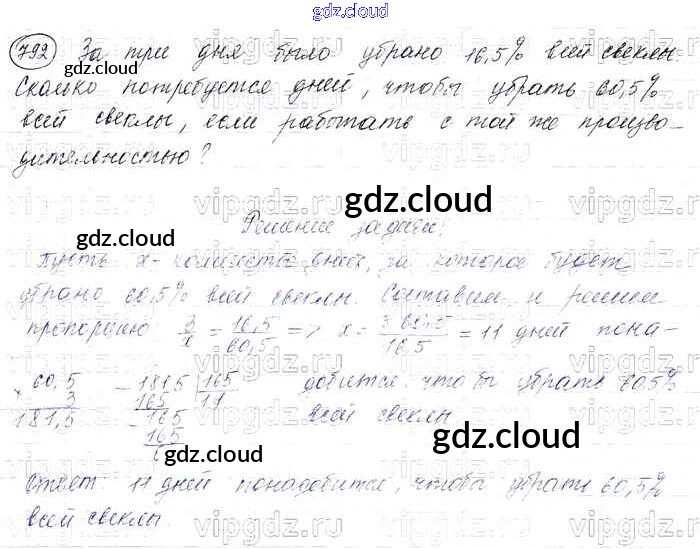 gdz.cloud
792 За три дня было убрано 16,5% всей свеклы.
Сколько потребуется дней, чтобы убрать 60,5%
всей свеклы, если работать с той же произво-
дительностью?
Решение задачи:
Пусть x - количество дней, за которое будет
убрано 60,5% всей свеклы. Составим и решим
пропорцию: 3/x = 16,5/60,5 => x = 3·60,5/16,5 = 11 дней пона-
добится, чтобы убрать 60,5%
всей свеклы
× 60,5
3
181,5
- 1815 | 165
165 | 11
- 165
165
0
Ответ: 11 дней понадобится, чтобы убрать 60,5%
всей свеклы.
gdz.cloud
gdz.cloud
gdz.cloud
gdz.cloud
gdz.cloud
gdz.cloud
vipgdz.ru